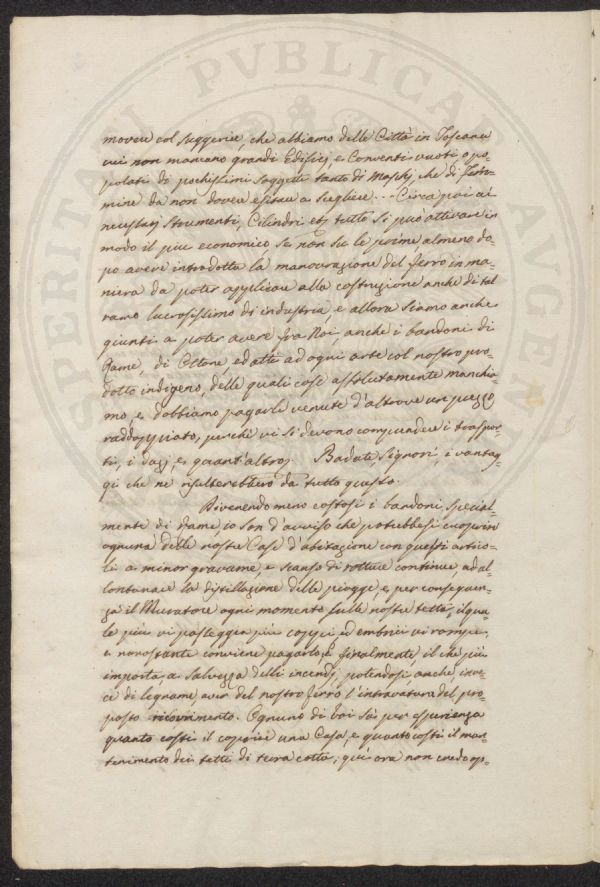 PROSPERITATI PVBLICAE AVGENDAE
movere col suggerire, che abbiamo delle Città in Toscana
cui non mancano grandi Edifizj, e Conventi vuoti o po-
polati di pochissimi Soggetti tanto di Maschj, che di Fem-
mine da non dovere esitare a Scegliere... Circa poi ai
necessarj Strumenti, Cilindri etc tutto si può attivare in
modo il più economico se non su le prime, almeno do-
po avere introdotta la manovrazione del ferro in ma-
niera da poter applicare alla costruzione anche di tal
ramo lucrosissimo di industria, e allora siamo anche
giunti a poter avere fra Noi, anche i bandoni di
Rame, di Ottone, ed altri ad ogni arte col nostro pro-
dotto indigeno, delle quali cose assolutamente manchia-
mo, e dobbiamo pagarle venute d'altrove un prezzo
raddoppiato, perchè vi si devono comprendere i traspor-
ti, i dazj, e quant'altro. Badate, Signori, i vantag-
gi che ne risulterebbero da tutto questo.
Divenendo meno costosi i bandoni, special-
mente di Rame, io son d'avviso che potrebbesi cuoprire
ognuna delle nostre Case d'abitazione con questi artico-
li a minor gravame, e scanso di rotture continue, ad al-
lontanare la distillazione delle piogge, e per conseguen-
za il Muratore ogni momento sulle nostre tetta, il qua-
le più vi passeggia più coppi, ed embrici vi rompe,
e nonostante conviene pagarlo, e finalmente, il che più
importa, a salvezza delli incendj, potendosi anche, inve-
ce di legname, aver del nostro ferro l'intravatura del pro-
posto ricuoprimento. Ognuno di Voi sà per esperienza
quanto costi il coprire una Casa, e quanto costi il man-
tenimento dei tetti di terra cotta; quì ora non credo op-